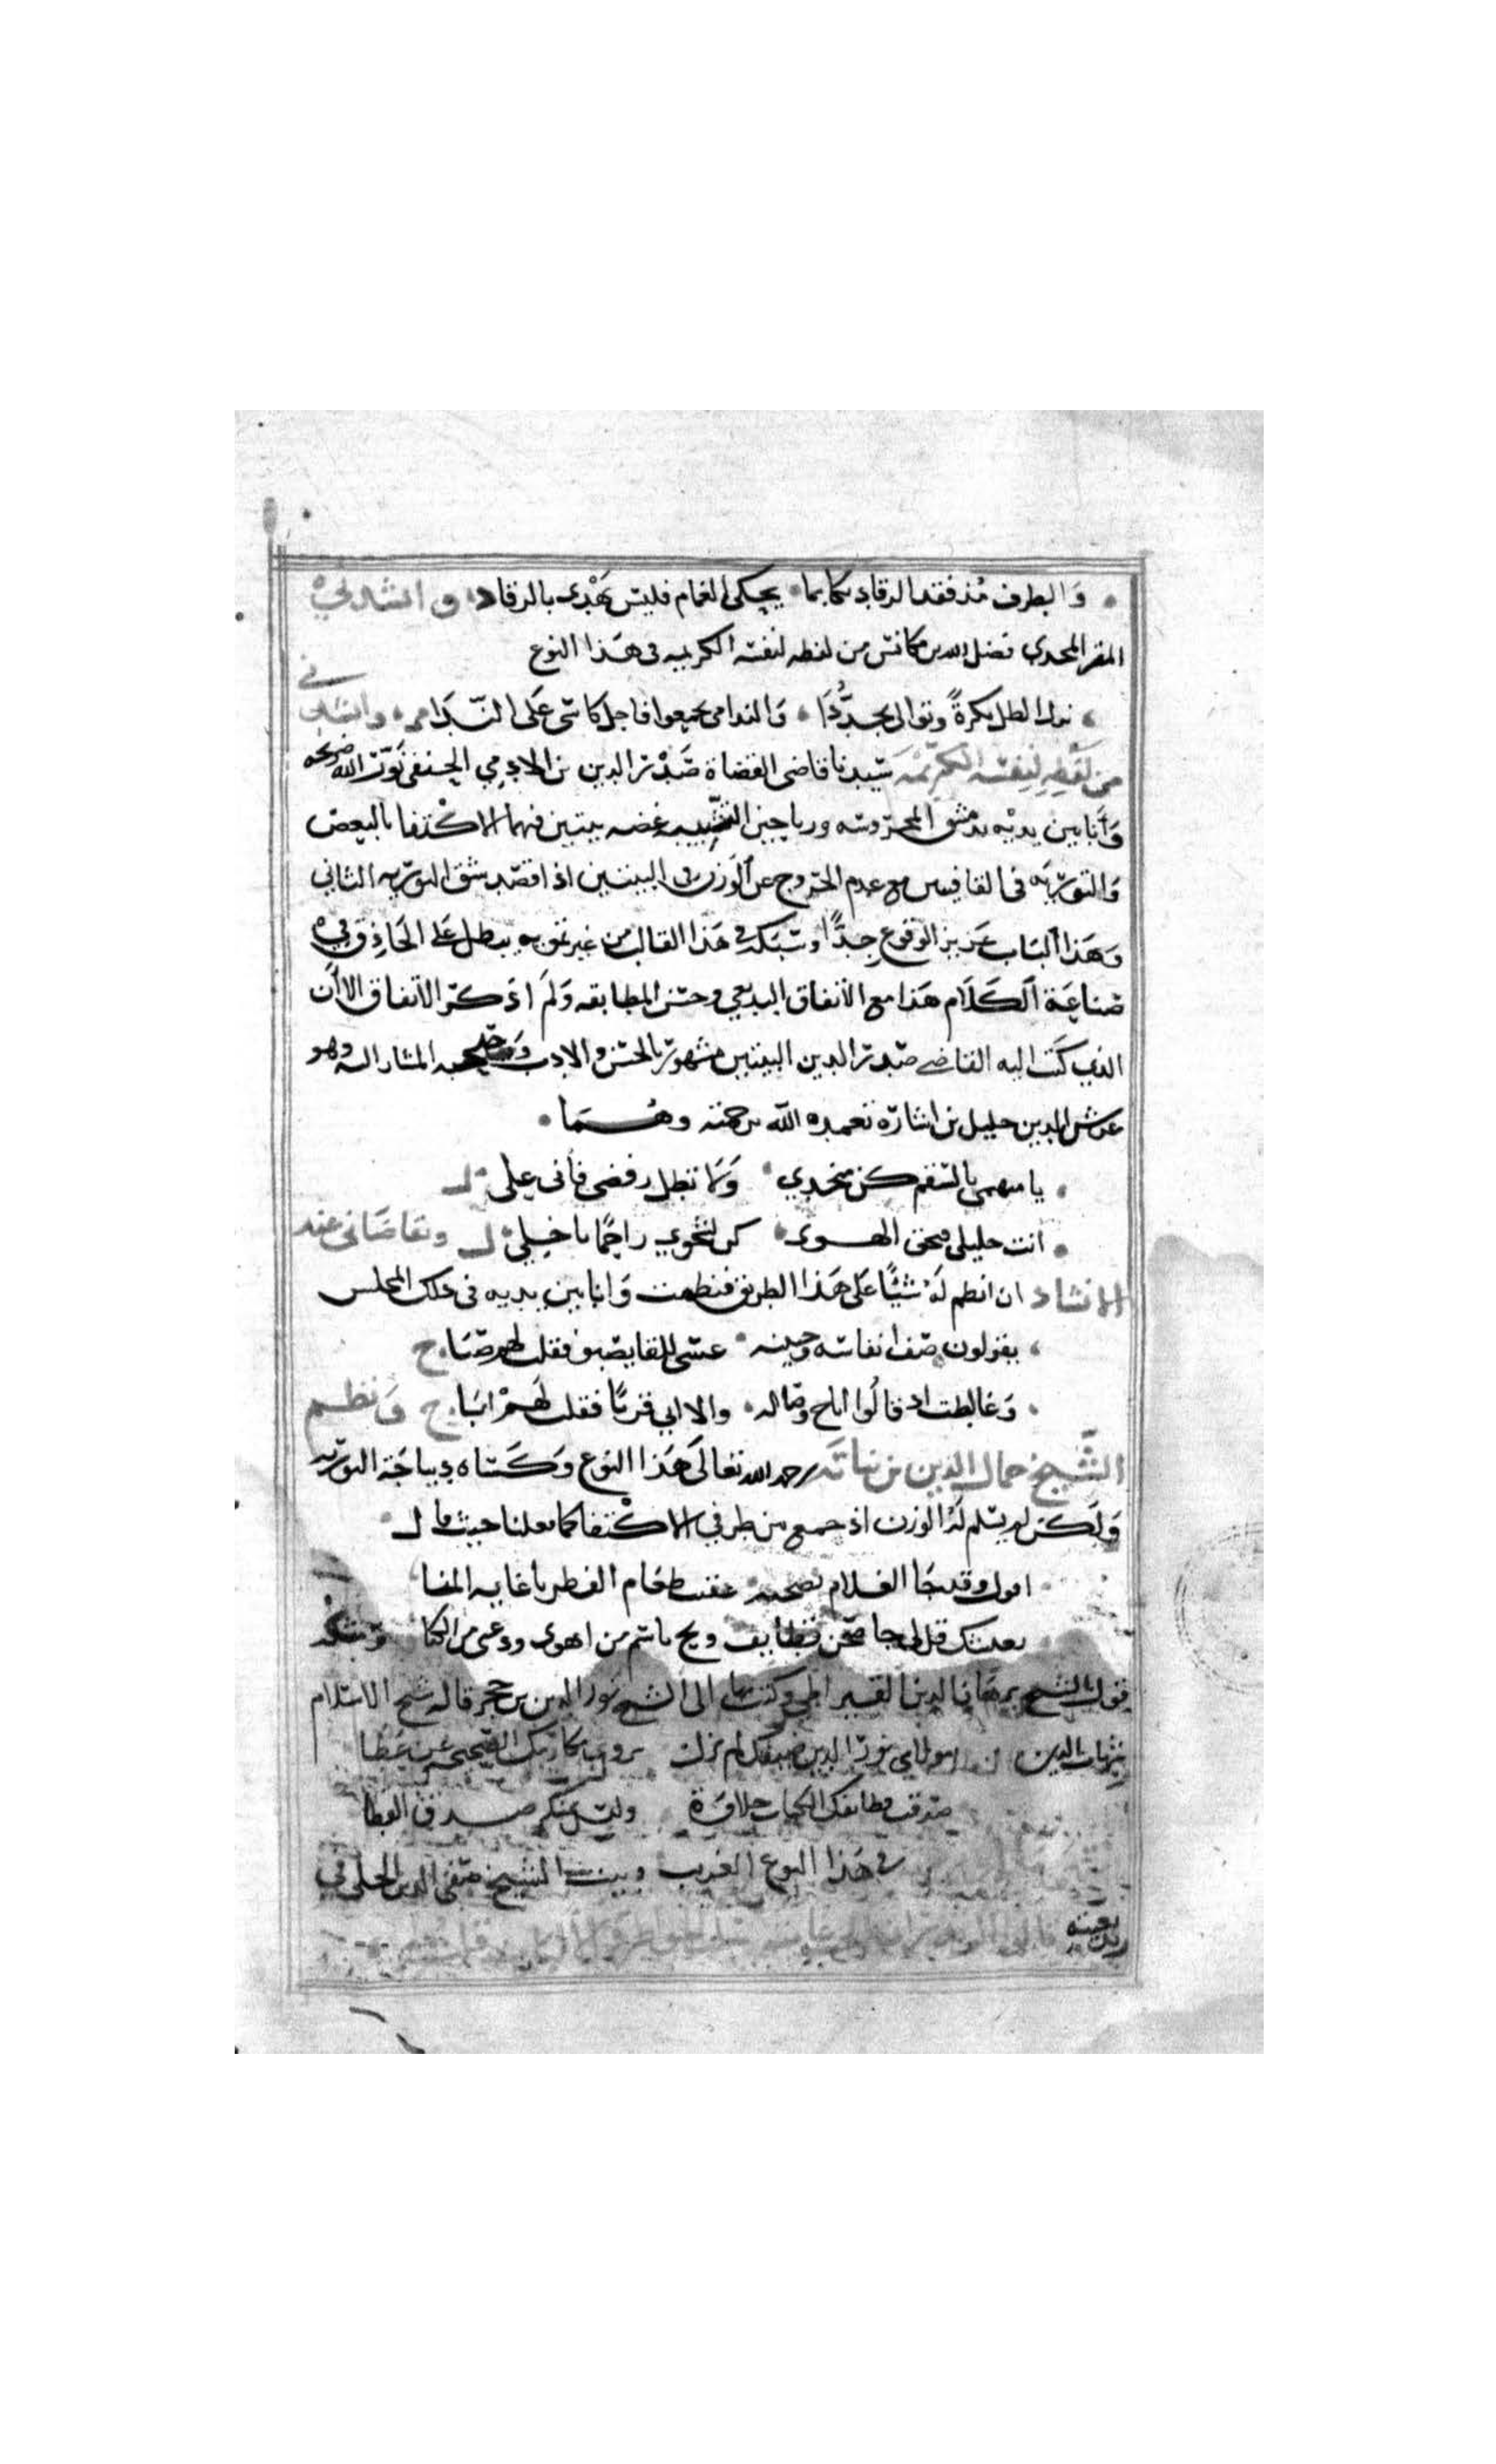 والطرف مذ فقد الرقاد بكا بما يحكي الغمام فليس يهدي بالرقاد وانشدني
المقر المجدي فضل الله بن مكانس من لفظه لنفسه الكريمه في هذا النوع
نزل الطل بكرةً وتوالى تجددا والندامى تجمعوا فاجل كاسي على الندامى وانشدني
من لفظه لنفسه الكريمه سيدنا قاضي القضاة صدر الدين بن الادمي الحنفي نور الله ضريحه
وأنا بين يديه بدمشق المحروسه ورياحين الشبيبه غضه بيتين فيهما الاكتفا بالبعض
والتوريه في القافيتين مع عدم الخروج عن الوزن في البيتين اذا قصد شق التوريه الثاني
وهذا الباب عزيز الوقوع جدًّا وسبكه في هذا القالب من غير تمويه يبطل على الحاذق في
صناعة الكلام هذا مع الاتفاق البديعي وحسن المطابقه ولم اذكر الاتفاق الا أن
الذي كتب اليه القاضي صدر الدين البيتين مشهور بالحسن والادب وصحبه المشار اليه وهو
غرس الدين خليل بن بشاره تغمده الله برحمته وهما
يا متهمي بالسقم كن منجدي ولا تطل رفضي فأني عليل
انت خليلي فبحق الهوى كن لشجوي راحمًا يا خليل وتقاضاني عند
الانشاد ان انظم له شيئًا على هذا الطريق فنظمت وانا بين يديه في ذلك المجلس
يقولون صف انفاسه وجبينه عسى للقا يصبو فقلت لهم صباح
وغالطت اذ قالوا اباح وصاله والا ابى قربًا فقلت لهم اباح ونظم
الشيخ جمال الدين بن نباته رحمه الله تعالى هذا النوع وكساه ديباجة التوريه
ولكن لم يسلم له الوزن اذ جمع بين طرفي الاكتفا كما فعلنا حيث قال
اقول وقد جا الغلام بصحنه عقيب طعام الفطر يا غاية المنا
بعيشك قل لي جا صحن قطايف وبح باسم من اهوى ودعني من الكنا ومثله
قول الشيخ برهان الدين القيراطي وكتب بها الى الشيخ نور الدين بن حجر قاله شيخ الاسلام
شهاب الدين مولاي نور الدين ضيفك لم يزل يروي مكارمك الصحيحه عن عطا
صدقت قطايفك الكبار حلاوة وليس بمنكر صدق القطا
في هذا النوع الغريب وبيت الشيخ صفي الدين الحلي في
بديعيته